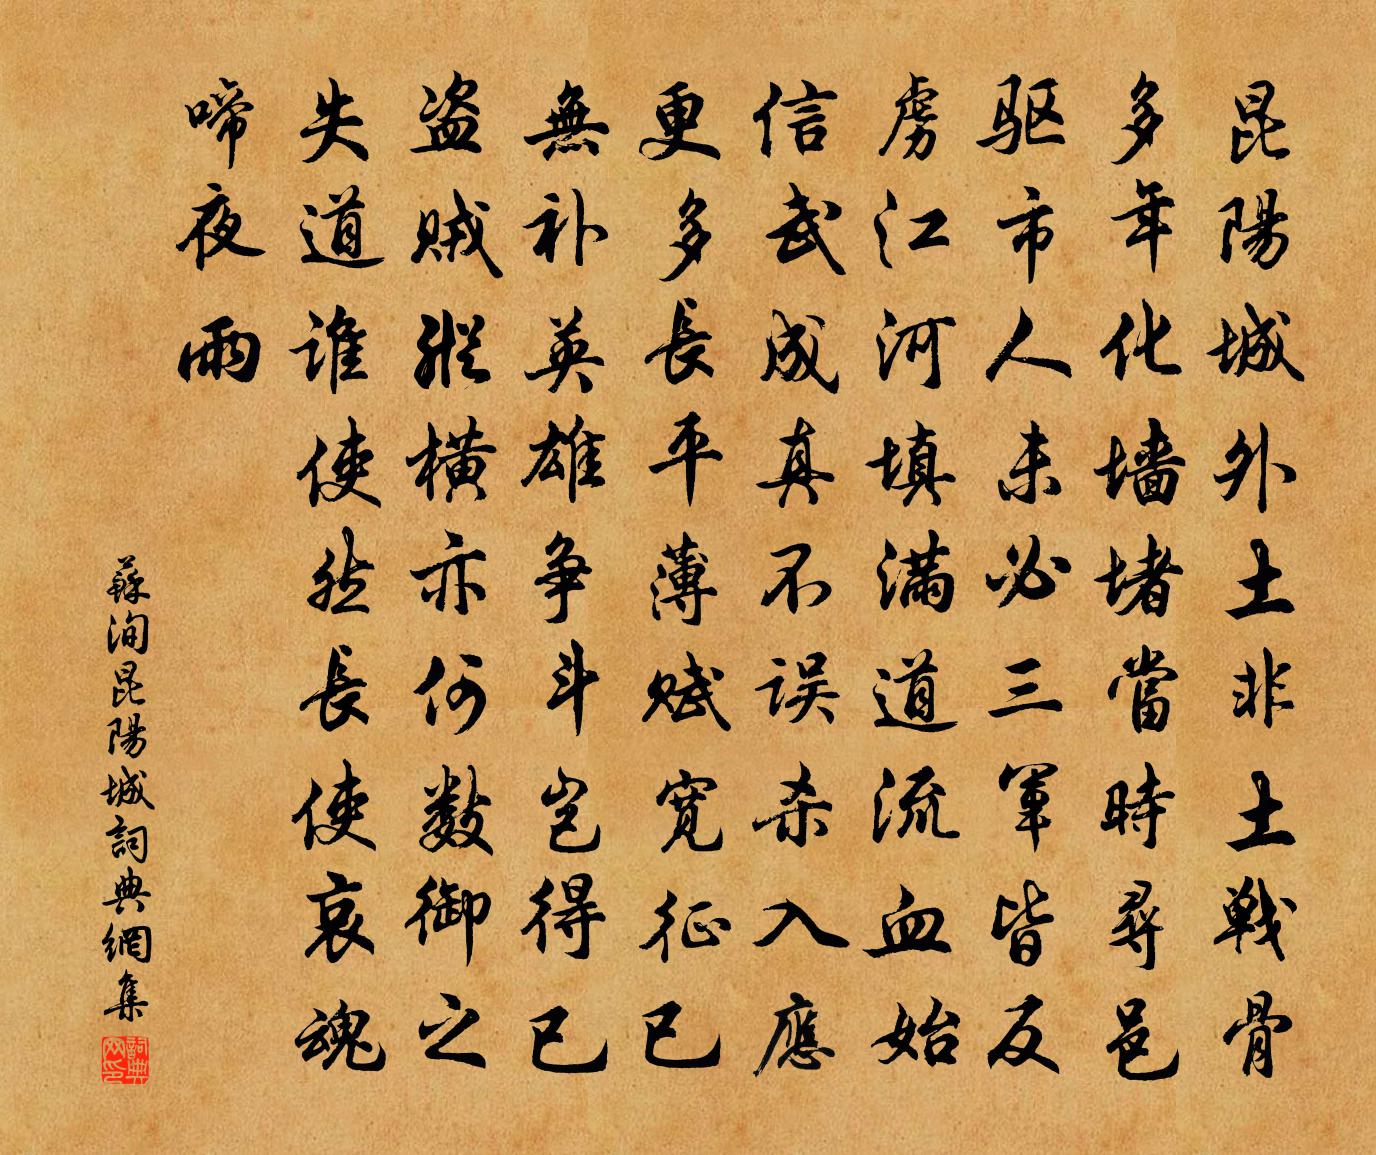 昆陽城外土非土戰骨
多年化墻堵當時尋邑
驱市人未必三軍皆反
虜江河填滿道流血始
信武成真不误杀入應
更多長平薄赋寬征已
無补英雄争斗岂得已
盗贼縱橫亦何數御之
失道谁使然長使哀魂
啼夜雨
蘇洵昆陽城詞典網集
詞典网印